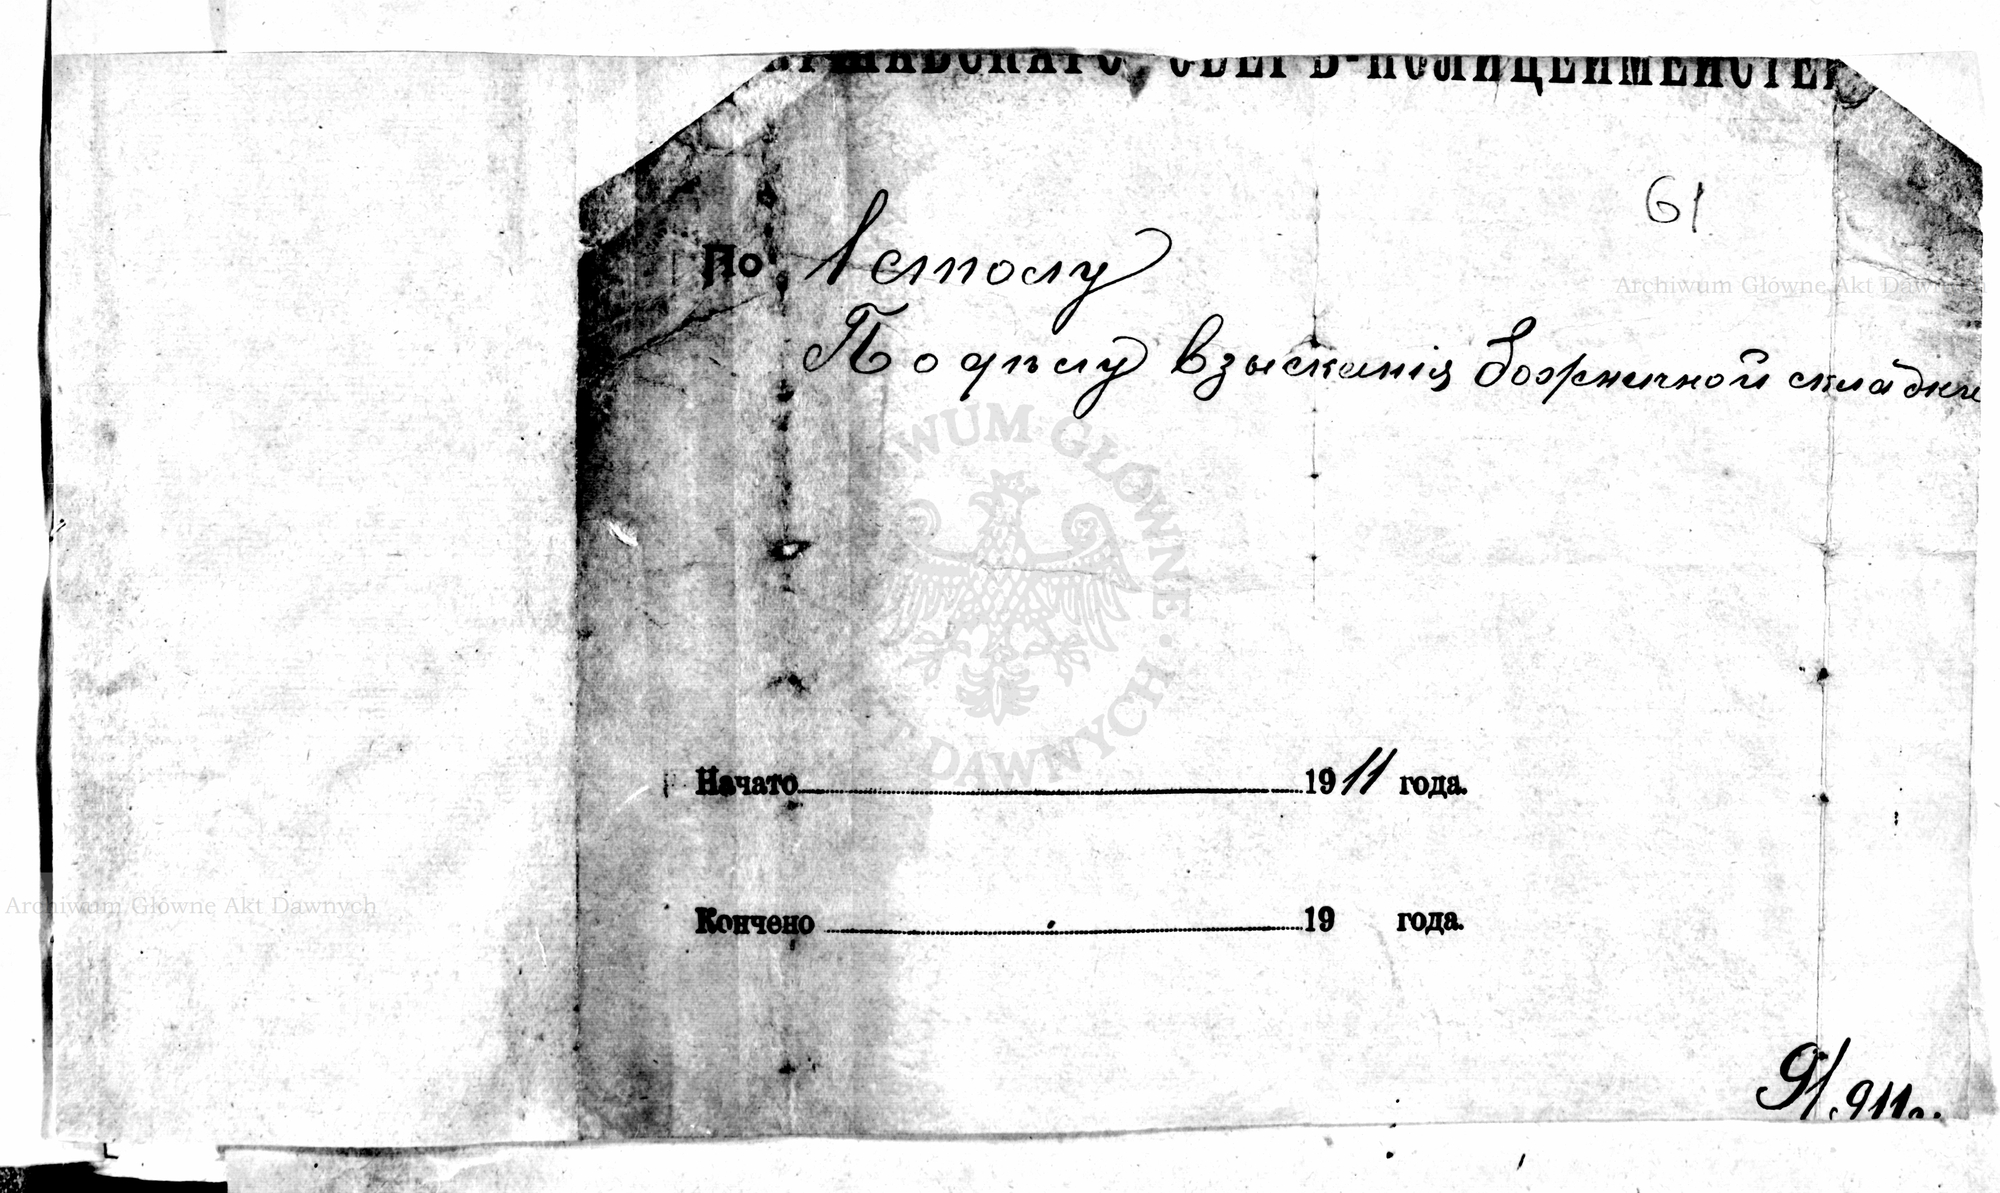 ОБЕРЪ-ПОЛИЦЕЙМЕЙСТЕР
61
По 1 столу
По дѣлу взысканія божничной складки
Archiwum Główne Akt Dawnych
WUM GŁÓWNE AKT DAWNYCH
Начато 1911 года.
Archiwum Główne Akt Dawnych
Кончено 19 года.
91/911 г.